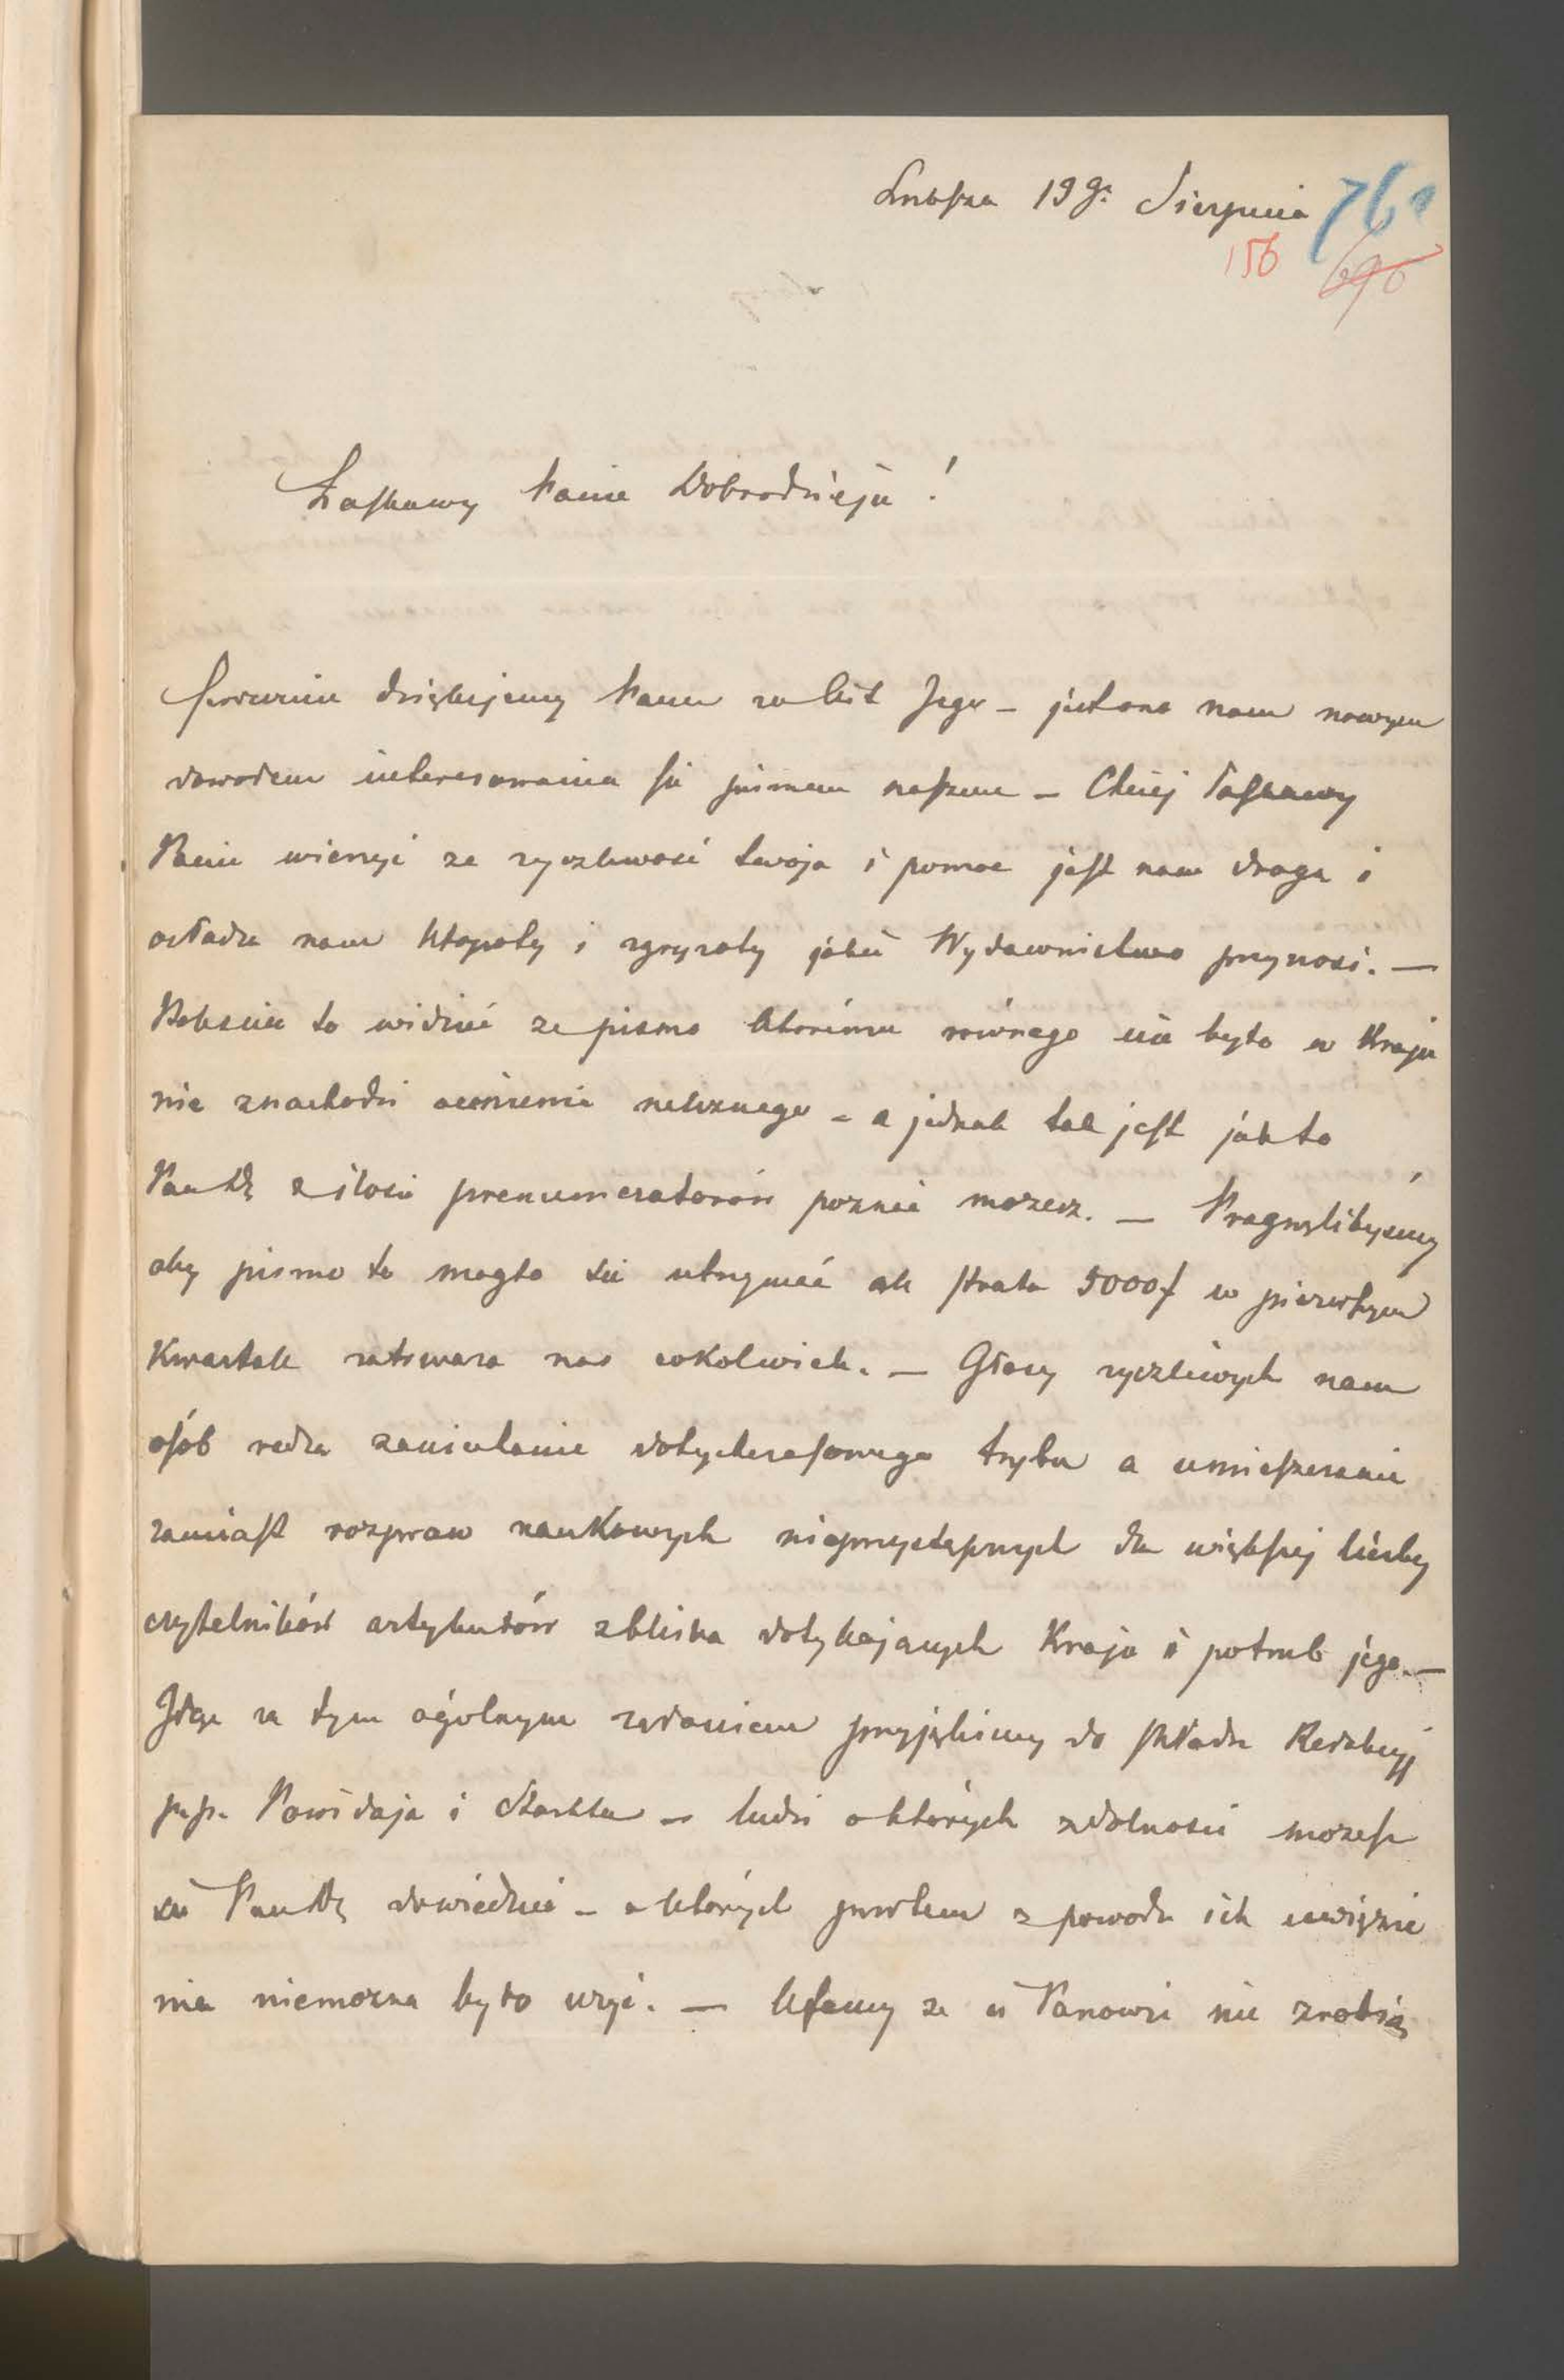 Lubsza 19go Sierpnia 76a
156 696
Łaskawy Panie Dobrodzieju!
Serdecznie dziękujemy Panu za list Jego – jest ono nam nowym
dowodem interesowania się pismem naszem – Chciej łaskawy
Panie wierzyć ze zyczliwość twoja i pomoc jest nam droga i
osładza nam kłopoty i zgryzoty jakie Wydawnictwo przynosi. —
Boleśnie to widzieć ze pismo któremu równego nie było w Kraju
nie znachodzi ocenienia nalerznego – a jednak tak jest jak to
Pan Db z ilości prenumeratorów poznać mozesz. — Pragnęlibyśmy
aby pismo to mogło się utrzymać ale strata 5000f w pierwszym
Kwartale zatrwaza nas cokolwiek. — Głosy zyczliwych nam
osób radzą zaniechanie dotychczasowego trybu a umieszczanie
zamiast rozpraw naukowych nieprzystępnych dla większej liczby
czytelników artykułów zbliska dotykających Kraju i potrzeb jego. —
Idąc za tym ogólnym ządaniem przyjęliśmy do składu Redakcyj
p.p. Powidaja i Starkla – ludzi o których zdolności mozesz
się Pan Db dowiedzieć – a których przedtem z powodu ich uwięzie
nia niemozna było uzyć. — Ufamy ze ci Panowie nie zrobią